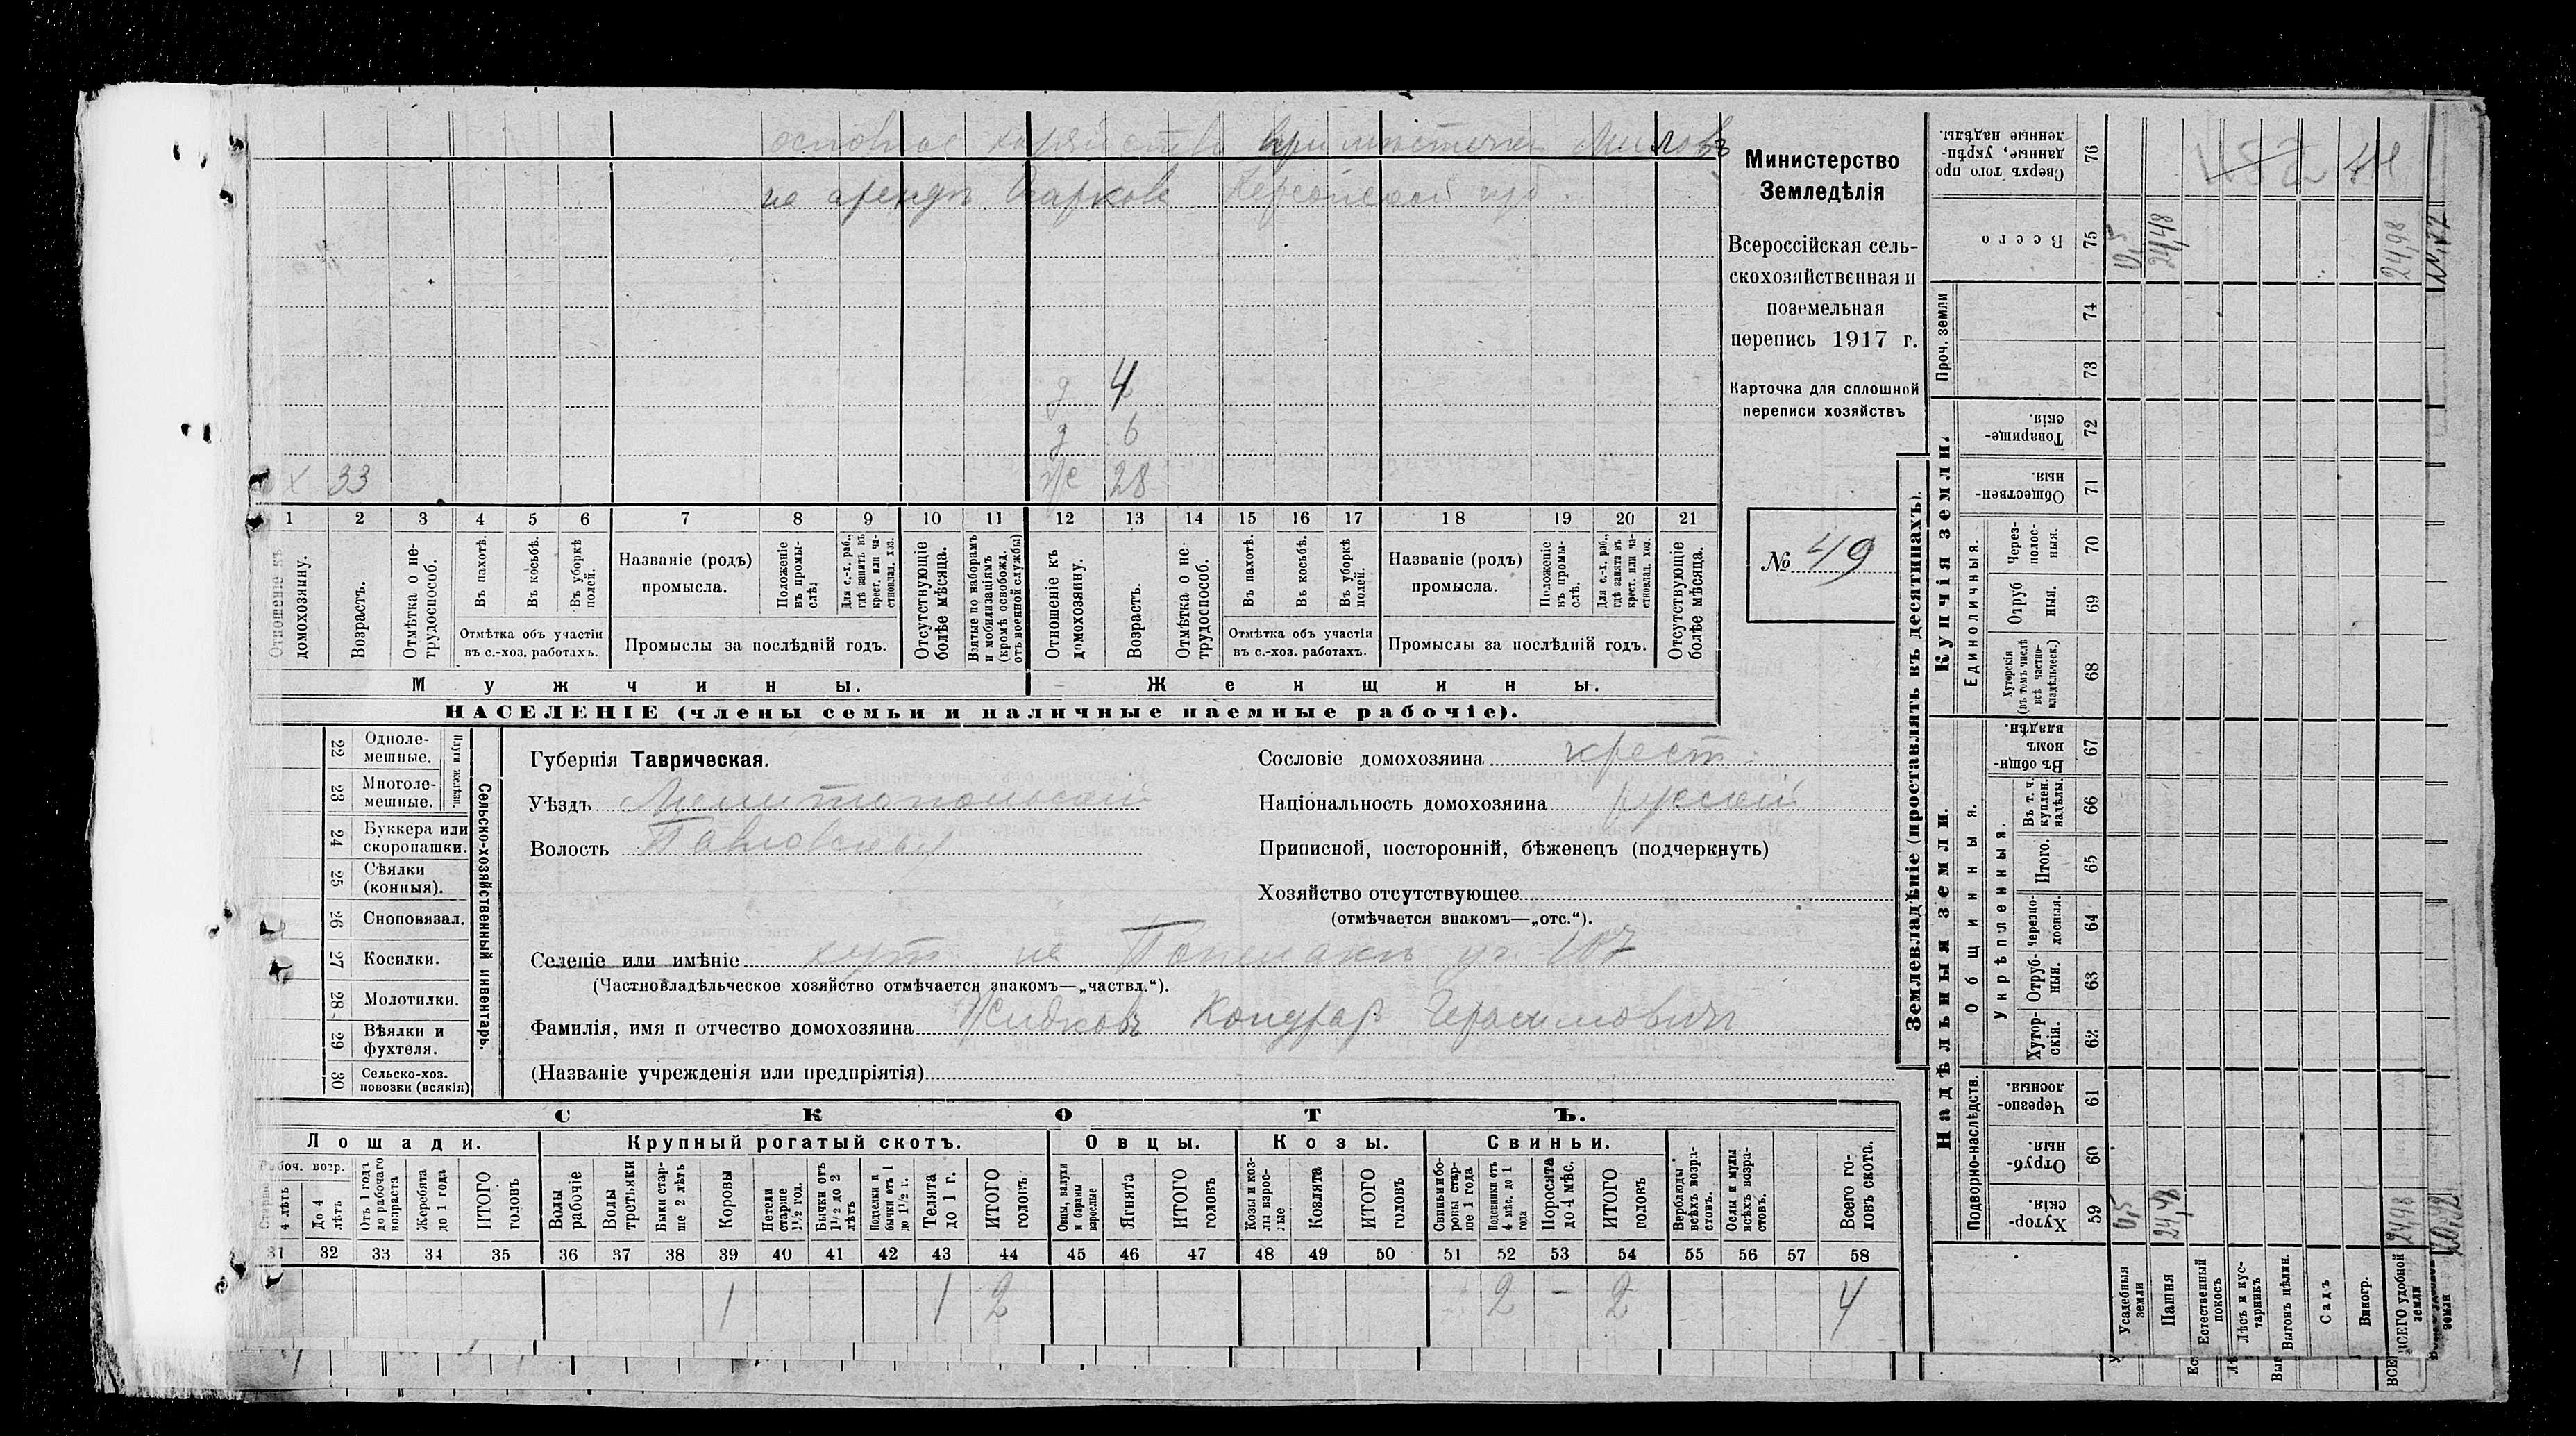 основное хозяйство при местечке
на аренде Херсонской губ.
Министерство
Земледѣлія
Всероссійская сель-
скохозяйственная и
поземельная
перепись 1917 г.
Карточка для сплошной
переписи хозяйствъ
№ 49
д 4
д 6
х 33 ж 28
1 2 3 4 5 6 7 8 9 10 11 12 13 14 15 16 17 18 19 20 21
Отношеніе къ домохозяину.
Возрастъ.
Отмѣтка о не-трудоспособ.
Въ пахотѣ.
Въ косьбѣ.
Въ уборкѣ полей.
Отмѣтка объ участіи
въ с.-хоз. работахъ.
Названіе (родъ)
промысла.
Положеніе въ промы-слѣ.
Для с.-х. раб., гдѣ занятъ въ крест. или ча-стновлад. хоз.
Промыслы за послѣдній годъ.
Отсутствующіе болѣе мѣсяца.
Взятые по наборамъ и мобилизаціямъ (кромѣ освобожд. отъ военной службы)
Отношеніе къ домохозяину.
Возрастъ.
Отмѣтка о не-трудоспособ.
Въ пахотѣ.
Въ косьбѣ.
Въ уборкѣ полей.
Отмѣтка объ участіи
въ с.-хоз. работахъ.
Названіе (родъ)
промысла.
Положеніе въ промы-слѣ.
Для с.-х. раб., гдѣ занята въ крест. или ча-стновлад. хоз.
Промыслы за послѣдній годъ.
Отсутствующіе болѣе мѣсяца.
Мужчины. Женщины.
НАСЕЛЕНІЕ (члены семьи и наличные наемные рабочіе).
Сельско-хозяйственный инвентарь.
Плуги желѣзн.
22 Одноле-мешные.
23 Многоле-мешные.
24 Буккера или скоропашки.
25 Сѣялки (конныя).
26 Сноповязал.
27 Косилки.
28 Молотилки.
29 Вѣялки и фухтеля.
30 Сельско-хоз. повозки (всякія)
Губернія Таврическая.
Уѣздъ Мелитопольскій
Волость Павловская
Сословіе домохозяина крест.
Національность домохозяина русскій
Приписной, посторонній, бѣженецъ (подчеркнуть)
Хозяйство отсутствующее
(отмѣчается знакомъ—„отс.“).
Селеніе или имѣніе хут. на уч. 107
(Частновладѣльческое хозяйство отмѣчается знакомъ—„частвл.“).
Фамилія, имя и отчество домохозяина Жидковъ Кондратъ Герасимовичъ
(Названіе учрежденія или предпріятія)
СКОТЪ.
Лошади. Крупный рогатый скотъ. Овцы. Козы. Свиньи.
Рабоч. возр.
Старше 4 лѣтъ
До 4 лѣтъ
Отъ 1 года до рабочаго возраста
Жеребята до 1 года
ИТОГО головъ
Волы рабочіе
Волы третьяки
Быки стар-ше 2 лѣтъ
Коровы
Нетели старше 1½ год.
Бычки отъ 1½ до 2 лѣтъ
Подтелки и бычки отъ 1 до 1½ г.
Телята до 1 г.
ИТОГО головъ
Овцы, валухи и бараны взрослые
Ягнята
ИТОГО головъ
Козы и коз-лы взрос-лые
Козлята
ИТОГО головъ
Свиньи и бо-ровы стар-ше 1 года
Подсвинки отъ 4 мѣс. до 1 года
Поросята до 4 мѣс.
ИТОГО головъ
Верблюды всѣхъ возра-стовъ.
Ослы и мулы всѣхъ возра-стовъ.
Всего го-ловъ скота.
31 32 33 34 35 36 37 38 39 40 41 42 43 44 45 46 47 48 49 50 51 52 53 54 55 56 57 58
1 1 2 2 - 2 4
Землевладѣніе (проставлять въ десятинахъ).
Купчія земли.
Надѣльныя земли.
Проч. земли
Единоличныя.
Общинныя.
Укрѣпленныя.
Подворно-наслѣдств.
Сверхъ того про-данные, укрѣп-ленные надѣлы. 76
Всего 75
74
73
Товарище-скія. 72
Обществен-ныя. 71
Через-полос-ныя. 70
Отруб-ныя. 69
Хуторскія (въ томъ числѣ всѣ частно-владѣльческ.) 68
Въ общин-номъ владѣн. 67
Въ т. ч. куплен. надѣлы 66
Итого. 65
Черезпо-лосныя. 64
Отруб-ныя. 63
Хутор-скія. 62
Черезпо-лосныя. 61
Отруб-ныя. 60
Хутор-скія. 59
0,5 24,48 24,98
0,5 24,48 24,98
Усадебныя земли
Пашня
Естественный покосъ
Лѣсъ и кус-тарникъ
Выгонъ цѣлин.
Садъ
Виногр.
ВСЕГО удобной земли